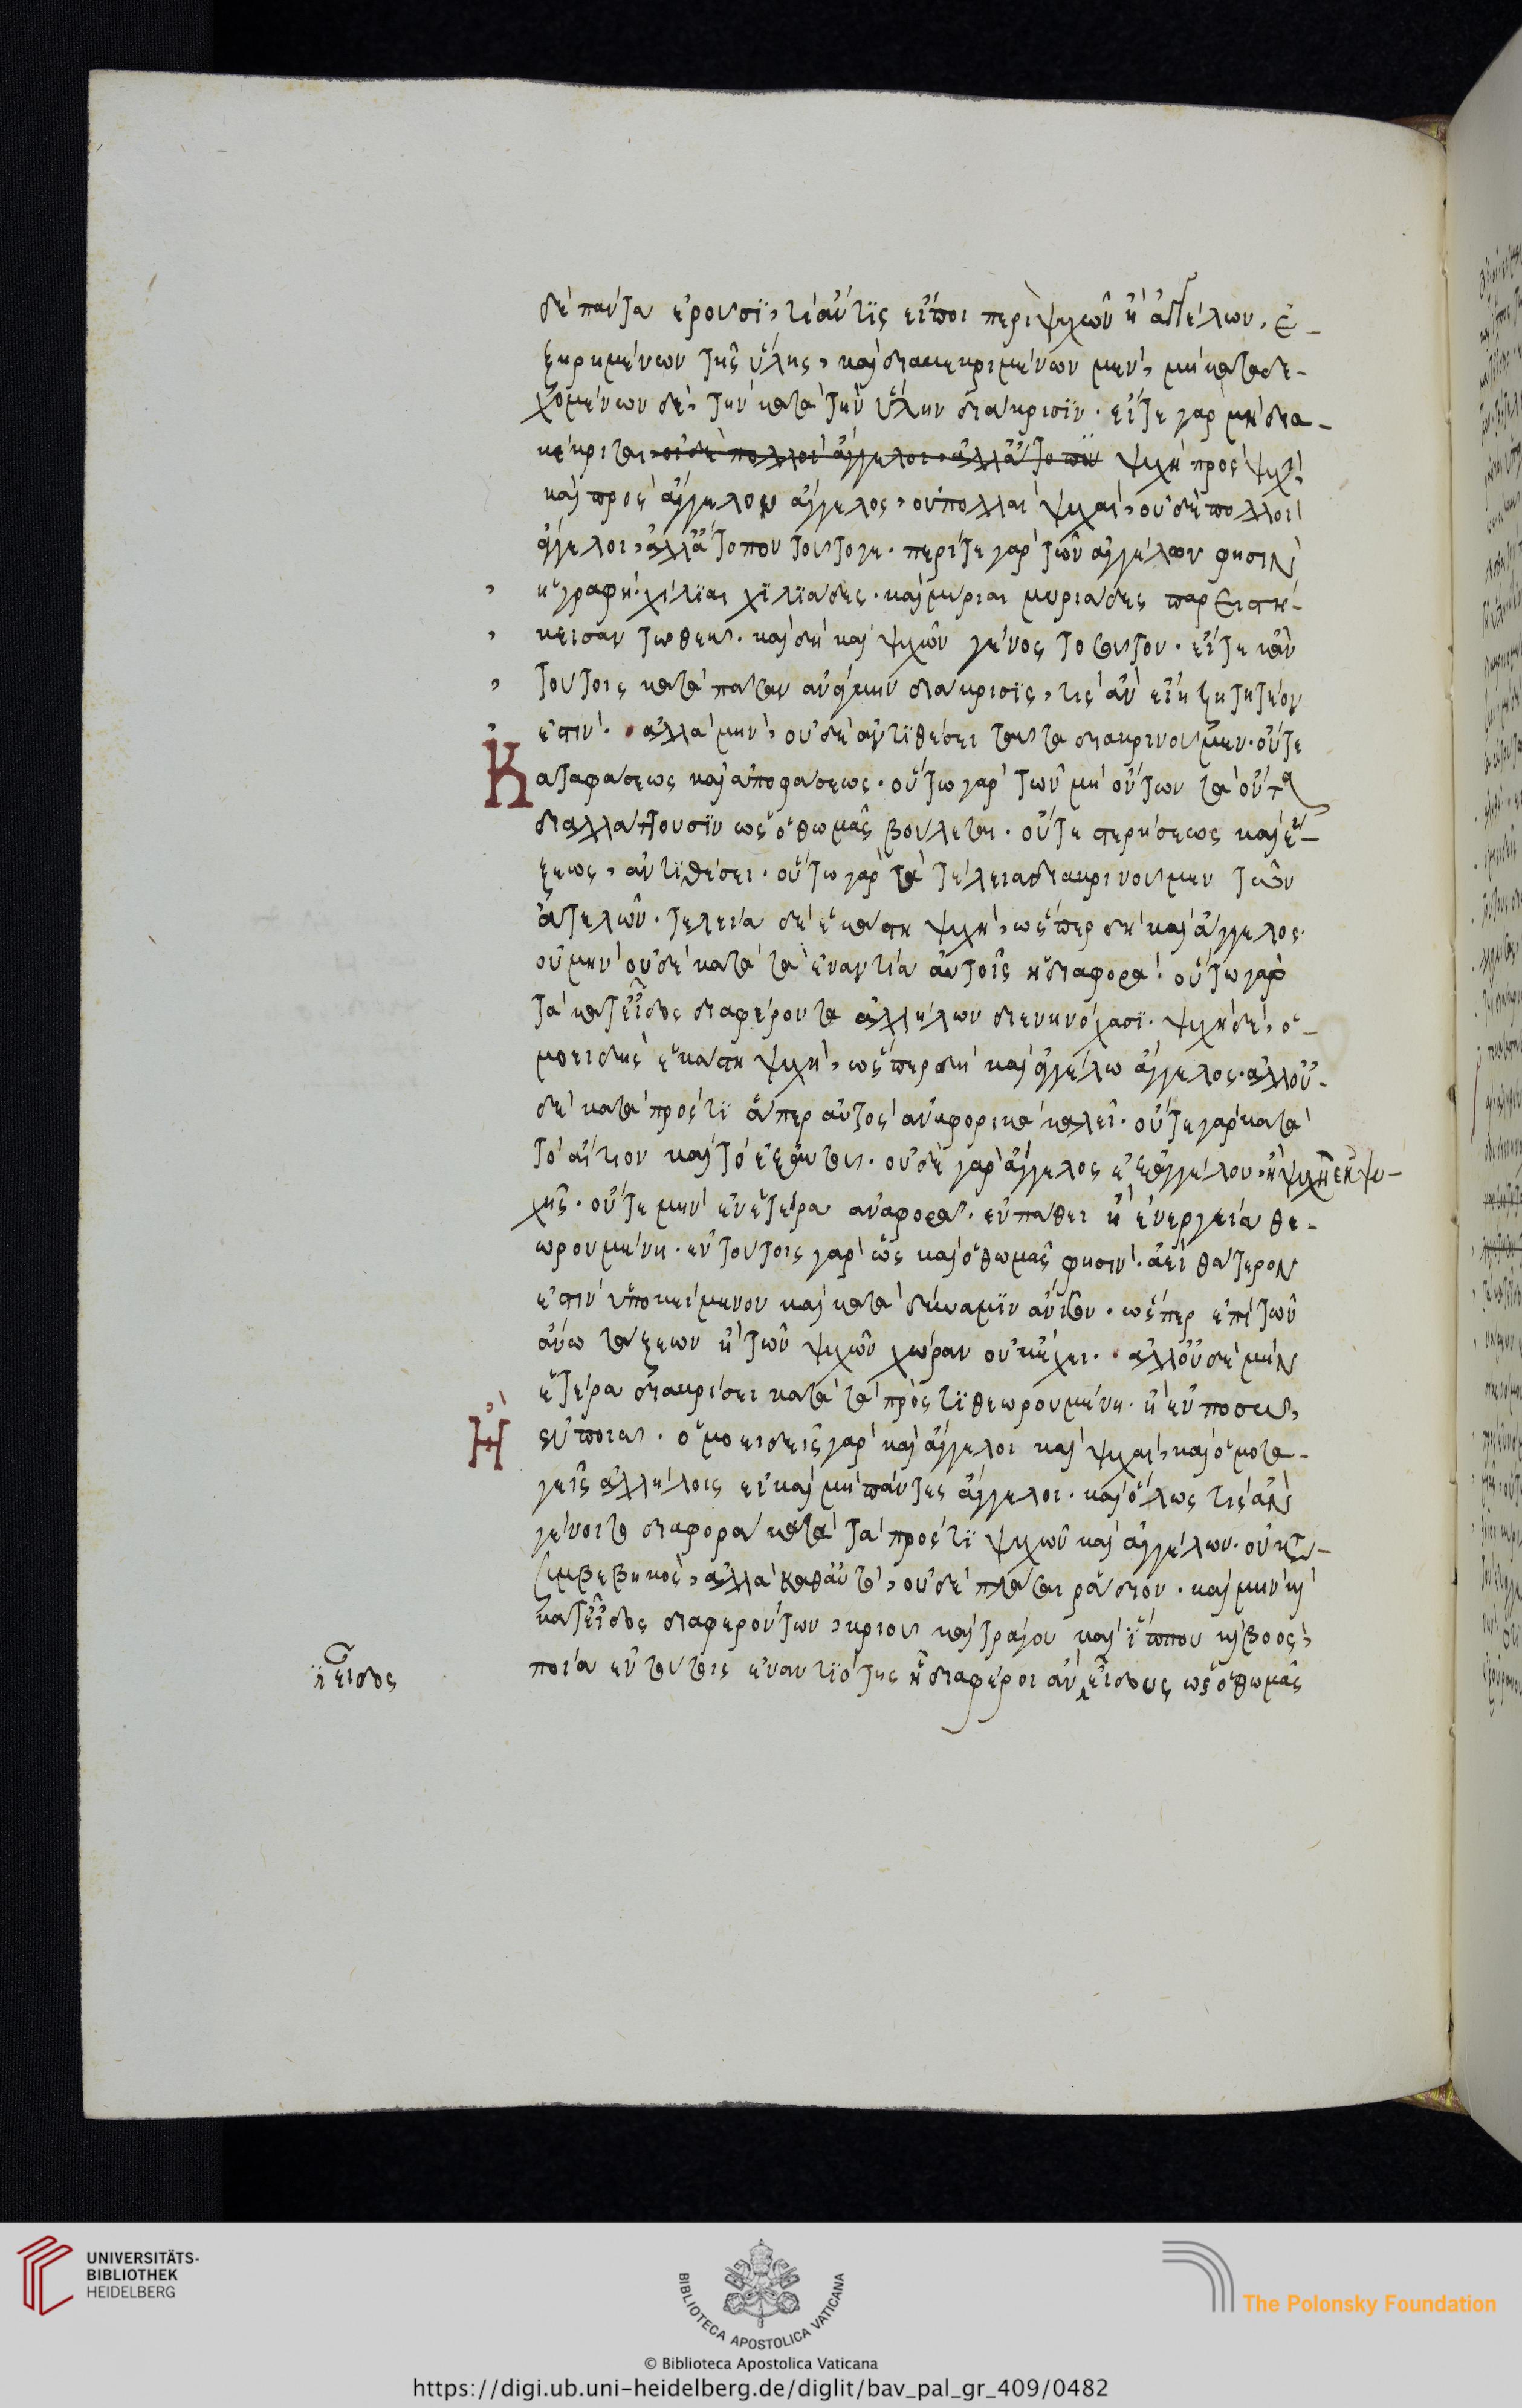 δὲ πάντα ἐροῦσι, τί ἄν τις εἴποι περὶ ψυχῶν ἢ ἀγγέλων, ἐ-
ξῃρημένων τῆς ὕλης, καὶ διακεκριμένων μὲν, μὴ καταδε-
χομένων δὲ τὴν κατὰ τὴν ὕλην διάκρισιν. εἴτε γὰρ μὴ δια-
κέκριται οὐδὲ πολλοὶ ἄγγελοι, ἀλλ' ἄτοπον ψυχὴ πρὸς ψυχὴν
καὶ πρὸς ἄγγελον ἄγγελος, οὐ πολλαὶ ψυχαὶ, οὐδὲ πολλοὶ
ἄγγελοι, ἀλλ' ἄτοπον τοῦτό γε. περί τε γὰρ τῶν ἀγγέλων φησὶν
ἡ γραφή. χίλιαι χιλιάδες. καὶ μύριαι μυριάδες παρειστή-
κεισαν τῷ θεῷ. καὶ δὴ καὶ ψυχῶν γένος τοιοῦτον. εἴτε κἀν
τούτοις κατὰ πᾶσαν ἀνάγκην διάκρισις, τίς ἂν εἴη ζητητέον
ἐστίν. ἀλλὰ μὴν, οὐδὲ ἀντιθέσει ταῦτα διακρίνουμεν. οὔτε
Καταφάσεως καὶ ἀποφάσεως. οὕτω γὰρ τῶν μὴ ὄντων τὰ ὄντα
διαλλάττουσιν ὡς ὁ θωμᾶς βούλεται. οὔτε στερήσεως καὶ ἕ-
ξεως, ἀντιθέσει. οὕτω γὰρ τὰ τέλεια διακρίνουμεν τῶν
ἀτελῶν. τελεία δὲ ἑκάστη ψυχὴ, ὥσπερ δὴ καὶ ἄγγελος.
οὐ μὴν οὐδὲ κατὰ τὰ ἐναντία αὐτοῖς ἡ διαφορά. οὕτω γὰρ
τὰ κατ' εἶδος διαφέροντα ἀλλήλων διενηνόχασι. ψυχὴ δὲ, ὁ-
μοειδὴς ἑκάστη ψυχῇ, ὥσπερ δὴ καὶ ἀγγέλῳ ἄγγελος. ἀλλ' οὐ-
δὲ κατὰ πρός τι ἅπερ αὐτὸς ἀναφορικὰ καλεῖ. οὔτε γὰρ κατὰ
τὸ αἴτιον καὶ τὸ ἐξ αὐτοῦ. οὐδὲ γὰρ ἄγγελος ἐξ ἀγγέλου, ἢ ψυχὴ ἐκ ψυ-
χῆς. οὔτε μὴν ἐν ἑτέρᾳ ἀναφορᾷ. ἐν πάθει ἢ ἐνεργείᾳ θε-
ωρουμένῃ. ἐν τούτοις γὰρ ὡς καὶ ὁ θωμᾶς φησιν. ἀεὶ θάτερον
ἐστὶν ὑποκείμενον καὶ κατὰ δύναμιν ἄνισον. ὥσπερ ἐπὶ τῶν
ἄνω τάξεων ἢ τῶν ψυχῶν χώραν οὐκ ἔχει. ἀλλ' οὐδὲ μὴν
ἑτέρᾳ διακρίσει κατὰ τὰ πρός τι θεωρουμένῃ. ἢ ἐν ποσῷ,
Ἢ ἐν ποιῷ. ὁμοειδεῖς γὰρ καὶ ἄγγελοι καὶ ψυχαὶ, καὶ ὁμοτα-
γεῖς ἀλλήλοις εἰ καὶ μὴ πάντες ἄγγελοι. καὶ ὅλως τίς ἂν
γένοιτο διαφορὰ κατὰ τὰ πρός τι ψυχῶν καὶ ἀγγέλων. οὐ κατὰ
συμβεβηκὸς, ἀλλὰ καθ' αὑτὸ, οὐδὲ πλάσαι ῥᾴδιον. καὶ μὴν καὶ
κατ' εἶδος διαφερόντων, κριοῦ καὶ τράγου καὶ ἵππου καὶ βοὸς,
ποία ἐν αὐτοῖς ἐναντιότης ᾗ διαφέροι ἂν εἴδους ὡς ὁ θωμᾶς
ἢ εἶδος